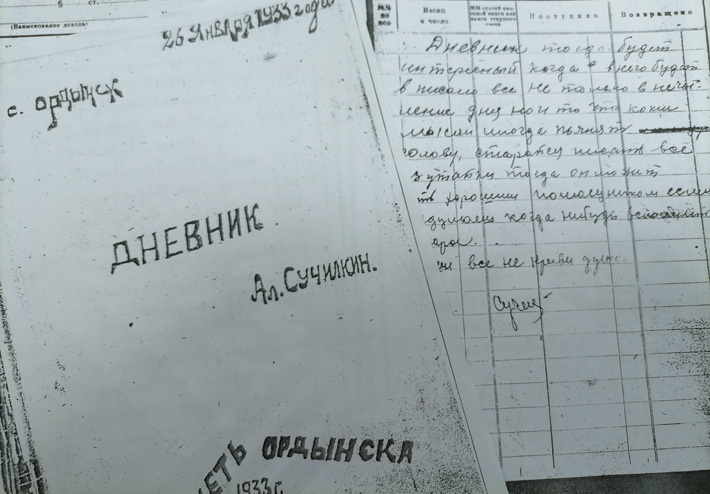 § ст.
(Наименование дохода)
26 января 1933 года
с. Ордынск
ДНЕВНИК
Ал. Сучилкин.
ЕТЬ ОРДЫНСКА
1933 г.
№№ по пор
Месяц и число
Поступило
Возвращено
Дневник тогда будет
интересный когда в него будет
вписано все не только
дня но и то что какие
мысли иногда
голову, старайся писать все
тогда он может
хорошим помощником если
думаеш когда нибудь
все не криви душ